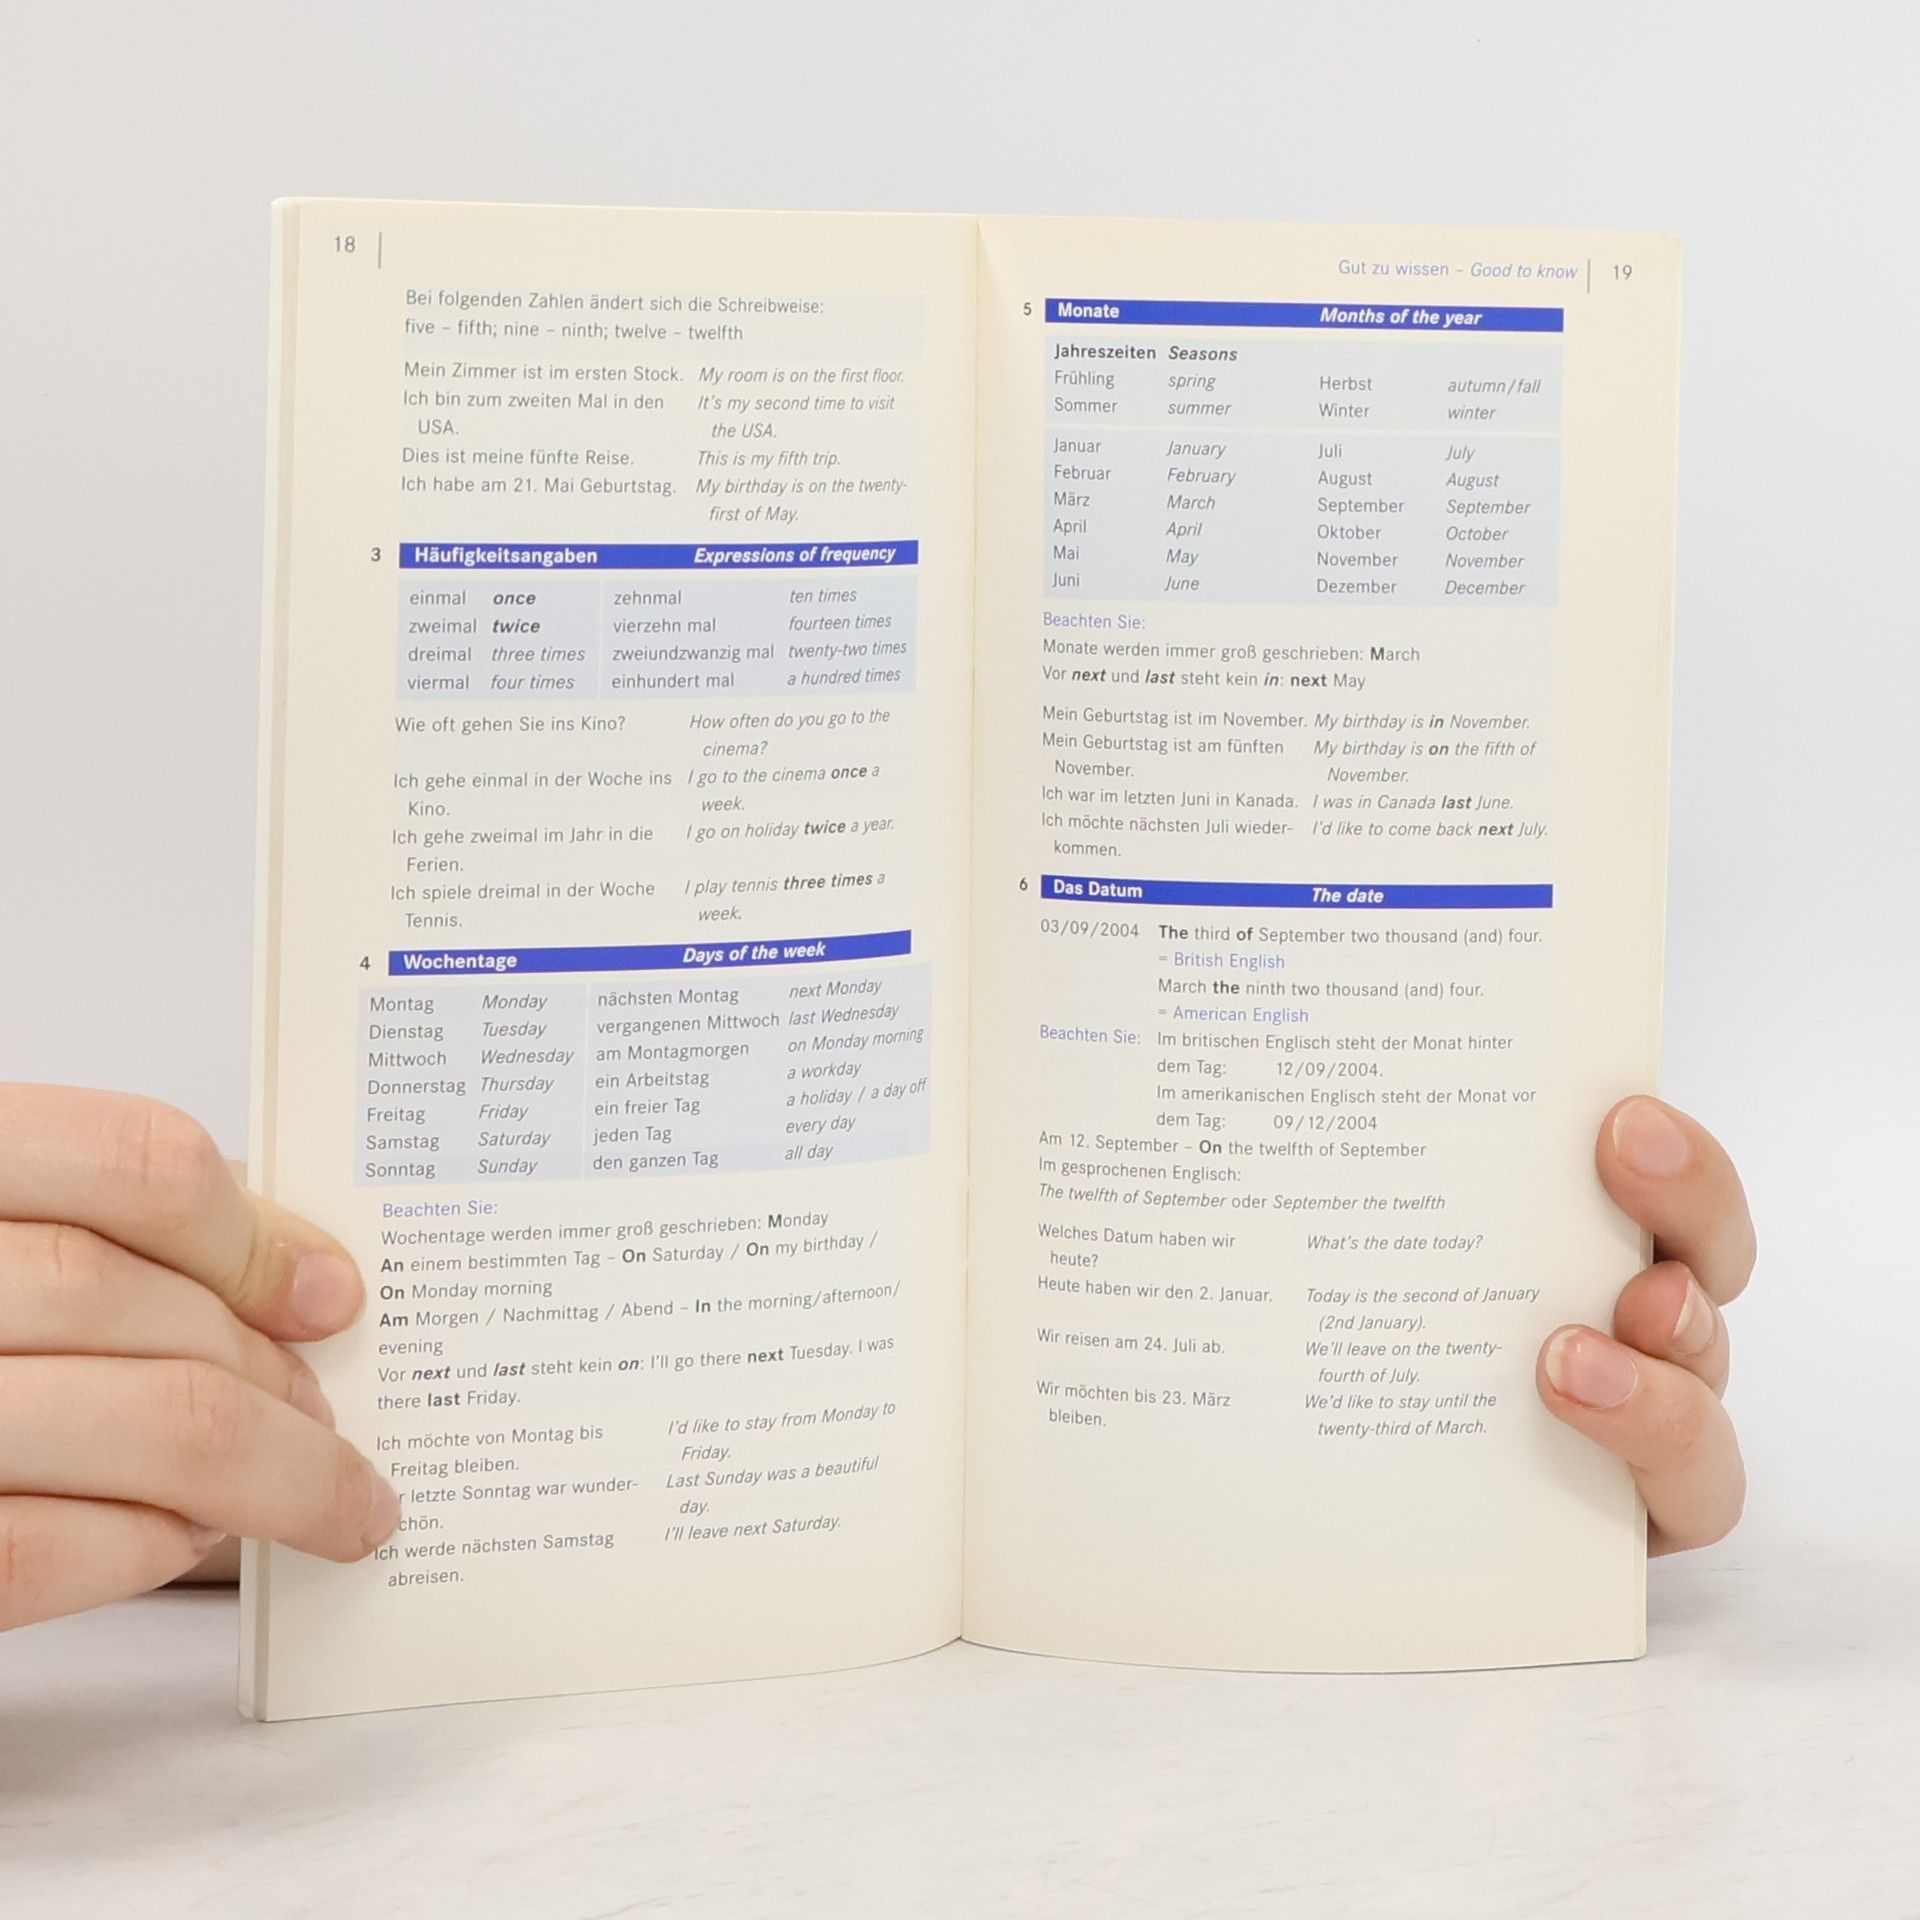 18
Bei folgenden Zahlen ändert sich die Schreibweise:
five – fifth; nine – ninth; twelve – twelfth
Mein Zimmer ist im ersten Stock. My room is on the first floor.
Ich bin zum zweiten Mal in den It's my second time to visit
USA. the USA.
Dies ist meine fünfte Reise. This is my fifth trip.
Ich habe am 21. Mai Geburtstag. My birthday is on the twenty-
first of May.
3 Häufigkeitsangaben Expressions of frequency
einmal once zehnmal ten times
zweimal twice vierzehn mal fourteen times
dreimal three times zweiundzwanzig mal twenty-two times
viermal four times einhundert mal a hundred times
Wie oft gehen Sie ins Kino? How often do you go to the
cinema?
Ich gehe einmal in der Woche ins I go to the cinema once a
Kino. week.
Ich gehe zweimal im Jahr in die I go on holiday twice a year.
Ferien.
Ich spiele dreimal in der Woche I play tennis three times a
Tennis. week.
4 Wochentage Days of the week
Montag Monday nächsten Montag next Monday
Dienstag Tuesday vergangenen Mittwoch last Wednesday
Mittwoch Wednesday am Montagmorgen on Monday morning
Donnerstag Thursday ein Arbeitstag a workday
Freitag Friday ein freier Tag a holiday / a day off
Samstag Saturday jeden Tag every day
Sonntag Sunday den ganzen Tag all day
Beachten Sie:
Wochentage werden immer groß geschrieben: Monday
An einem bestimmten Tag – On Saturday / On my birthday /
On Monday morning
Am Morgen / Nachmittag / Abend – In the morning/afternoon/
evening
Vor next und last steht kein on: I'll go there next Tuesday. I was
there last Friday.
Ich möchte von Montag bis I'd like to stay from Monday to
Freitag bleiben. Friday.
r letzte Sonntag war wunder- Last Sunday was a beautiful
chön. day.
Ich werde nächsten Samstag I'll leave next Saturday.
abreisen.
Gut zu wissen – Good to know 19
5 Monate Months of the year
Jahreszeiten Seasons
Frühling spring Herbst autumn/fall
Sommer summer Winter winter
Januar January Juli July
Februar February August August
März March September September
April April Oktober October
Mai May November November
Juni June Dezember December
Beachten Sie:
Monate werden immer groß geschrieben: March
Vor next und last steht kein in: next May
Mein Geburtstag ist im November. My birthday is in November.
Mein Geburtstag ist am fünften My birthday is on the fifth of
November. November.
Ich war im letzten Juni in Kanada. I was in Canada last June.
Ich möchte nächsten Juli wieder- I'd like to come back next July.
kommen.
6 Das Datum The date
03/09/2004 The third of September two thousand (and) four.
= British English
March the ninth two thousand (and) four.
= American English
Beachten Sie: Im britischen Englisch steht der Monat hinter
dem Tag: 12/09/2004.
Im amerikanischen Englisch steht der Monat vor
dem Tag: 09/12/2004
Am 12. September – On the twelfth of September
Im gesprochenen Englisch:
The twelfth of September oder September the twelfth
Welches Datum haben wir What's the date today?
heute?
Heute haben wir den 2. Januar. Today is the second of January
(2nd January).
Wir reisen am 24. Juli ab. We'll leave on the twenty-
fourth of July.
Wir möchten bis 23. März We'd like to stay until the
bleiben. twenty-third of March.